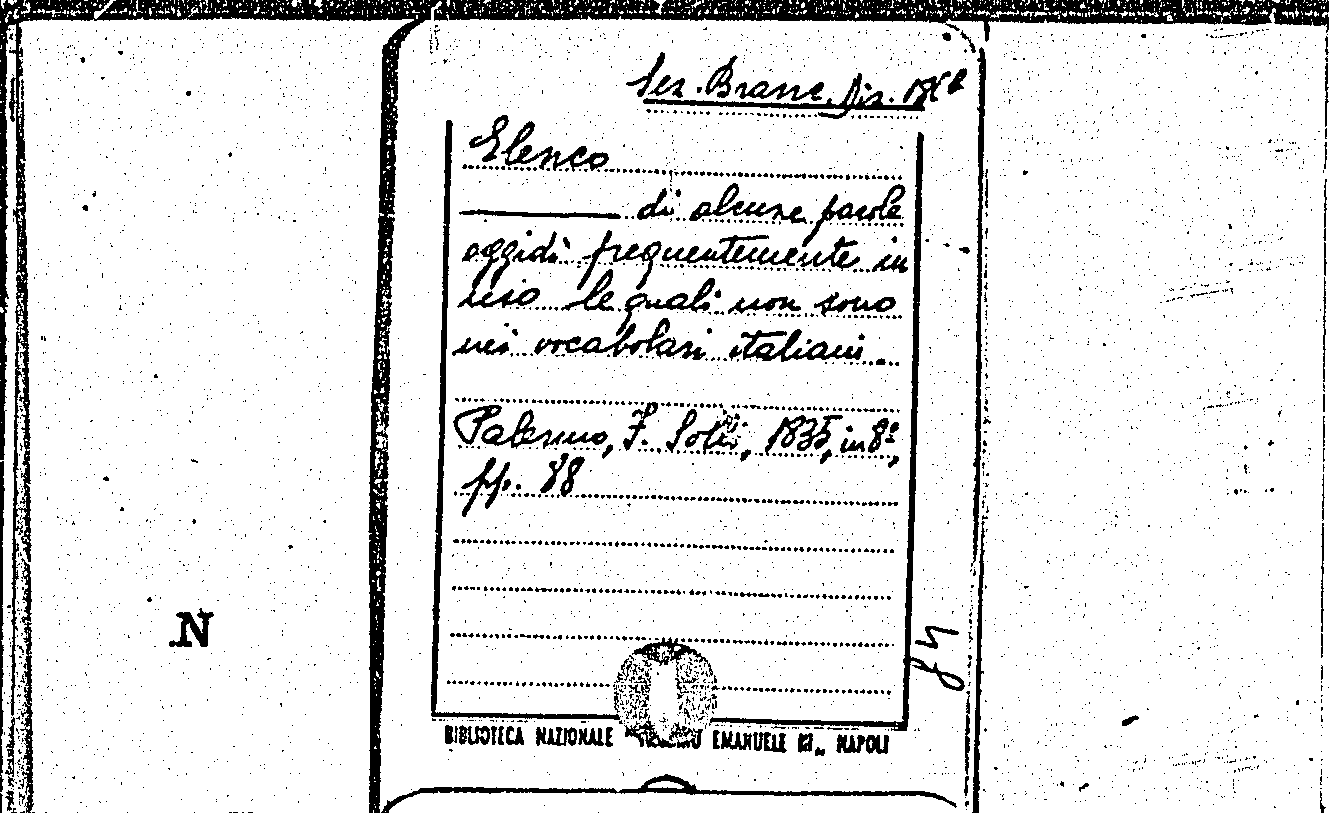 Sez. Branc. Diz.
Elenco
di alcune parole
oggidì frequentemente in
uso le quali non sono
nei vocabolari italiani.
Palermo, F. Solli, 1835, in 8º,
pp. 88
N
BIBLIOTECA NAZIONALE EMANUELE III„ NAPOLI